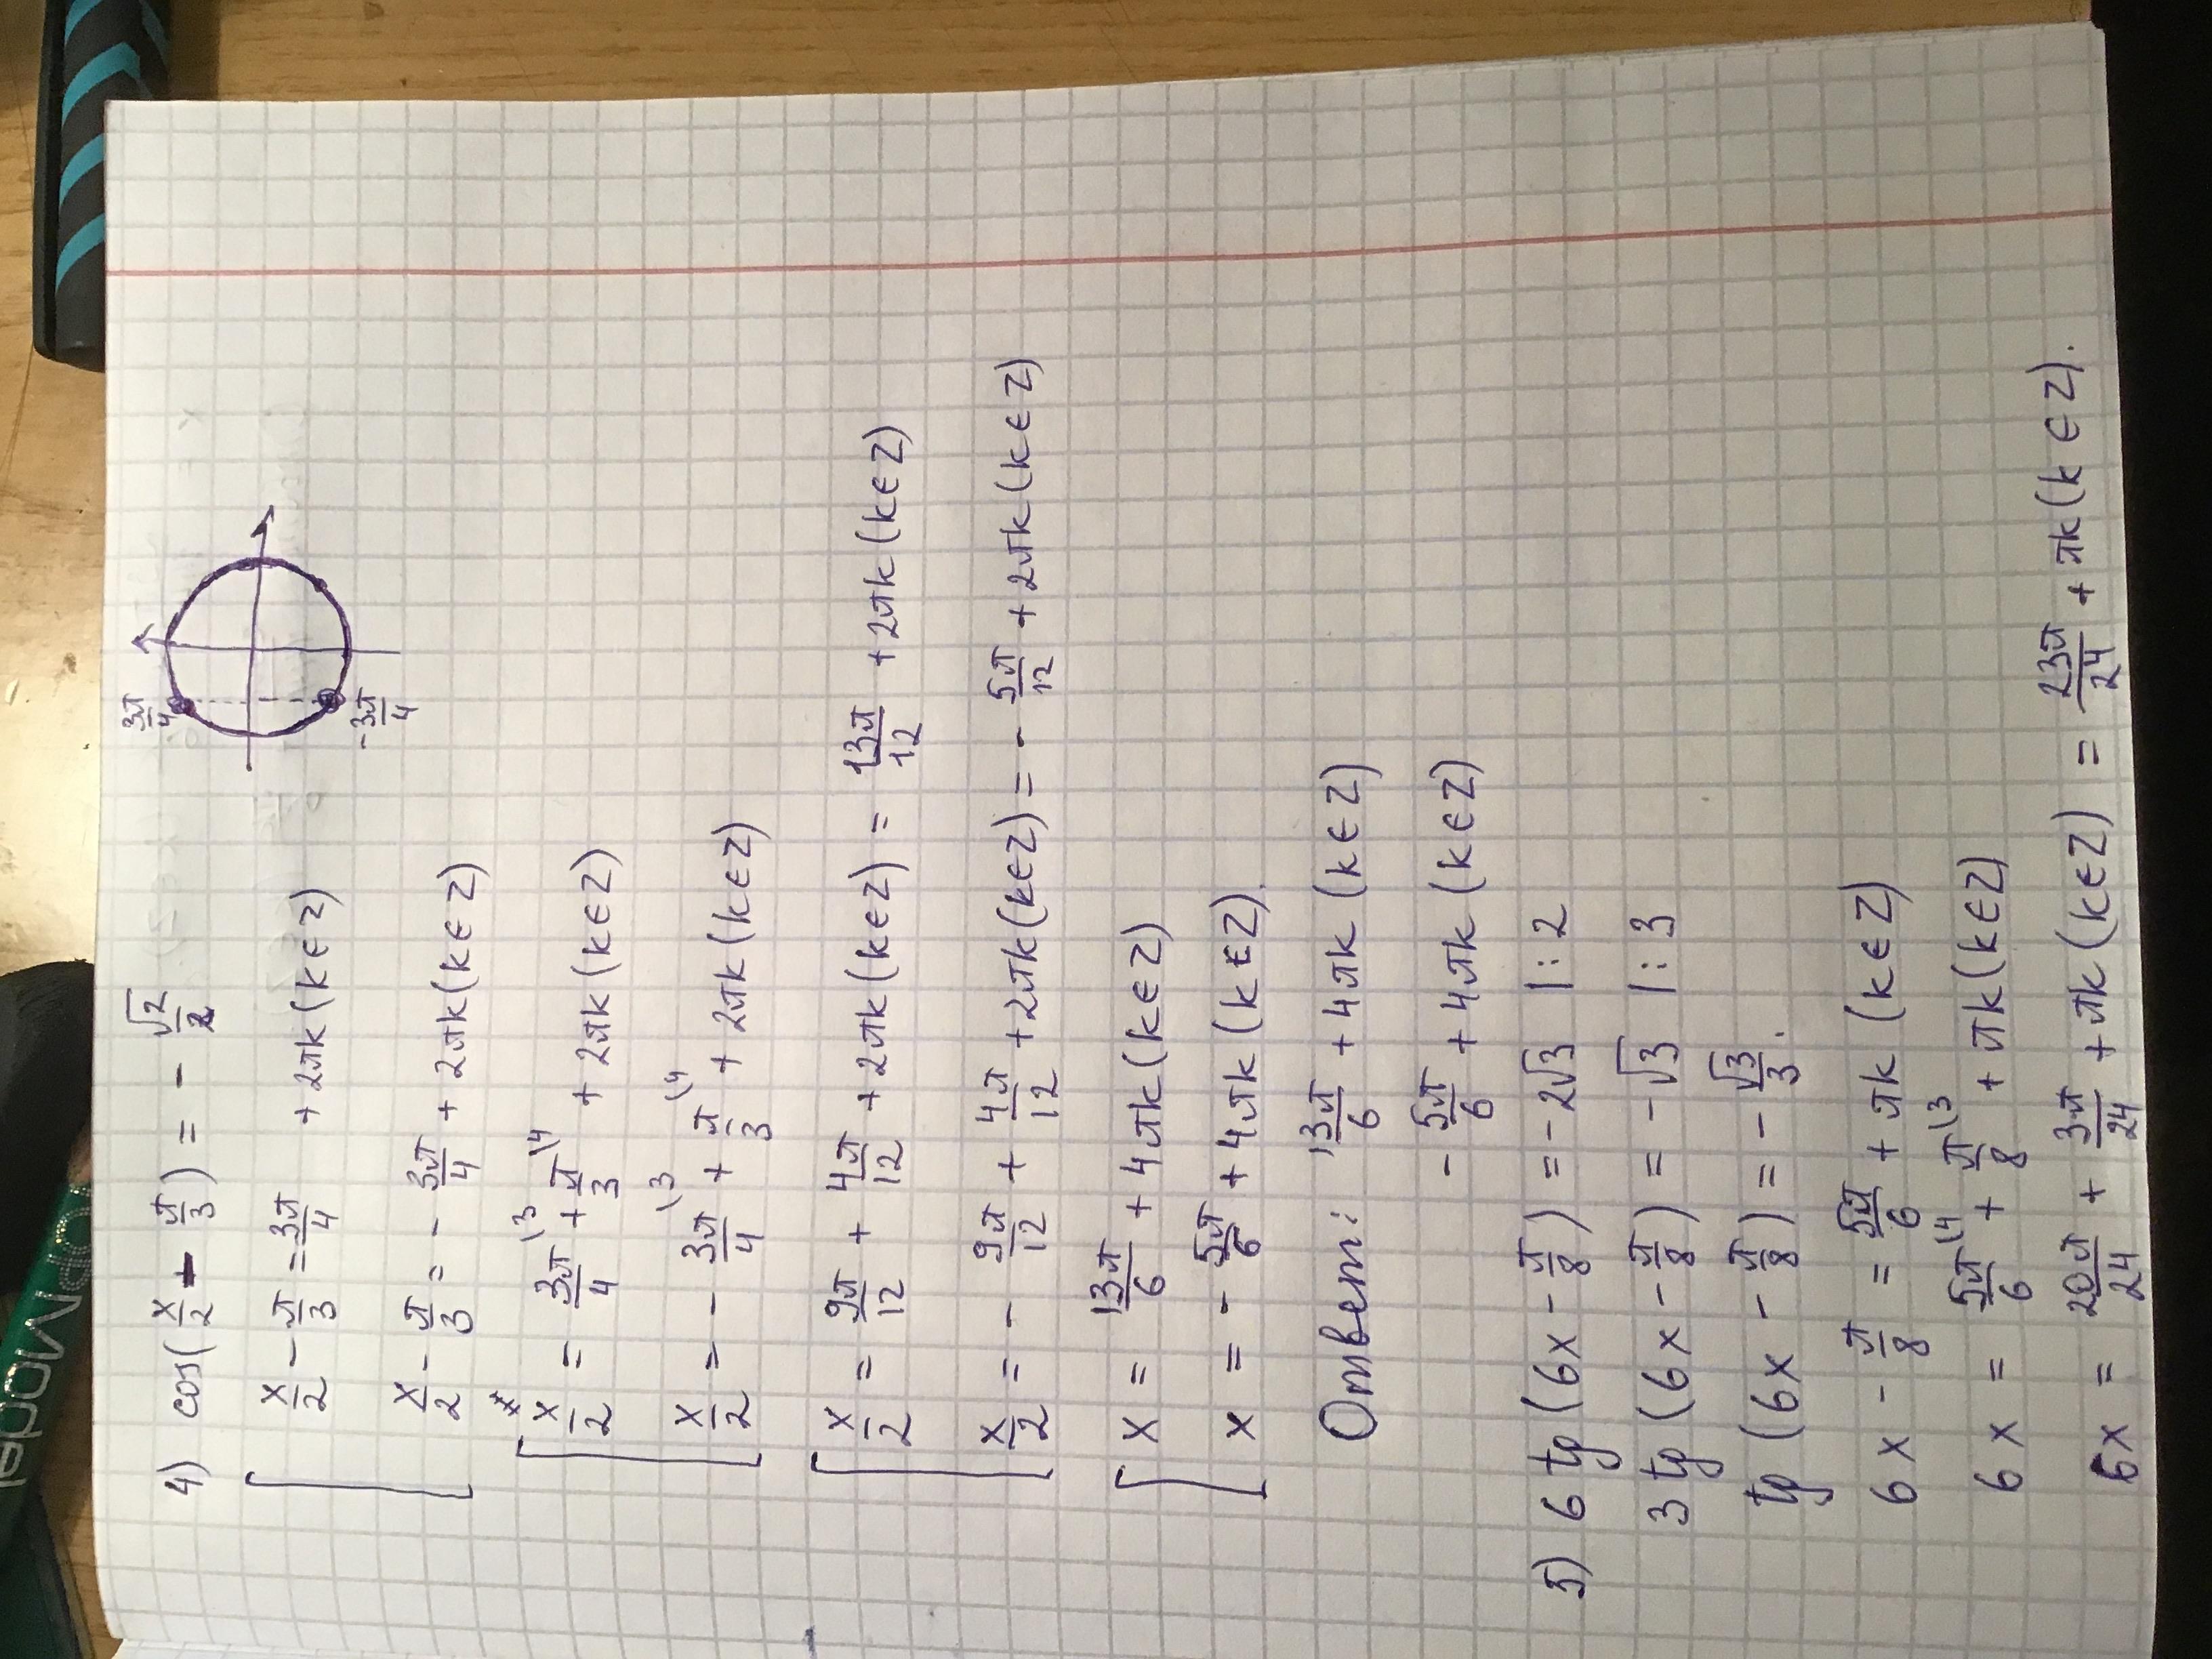 4) cos(x/2 - π/3) = - √2/2
3π/4
-3π/4
x/2 - π/3 = 3π/4 + 2πk (k∈Z)
x/2 - π/3 = - 3π/4 + 2πk (k∈Z)
x/2 = 3π/4 \3 + π/3 \4 + 2πk (k∈Z)
x/2 = - 3π/4 \3 + π/3 \4 + 2πk (k∈Z)
x/2 = 9π/12 + 4π/12 + 2πk (k∈Z) = 13π/12 + 2πk (k∈Z)
x/2 = - 9π/12 + 4π/12 + 2πk (k∈Z) = - 5π/12 + 2πk (k∈Z)
x = 13π/6 + 4πk (k∈Z)
x = - 5π/6 + 4πk (k∈Z).
Ответ: 13π/6 + 4πk (k∈Z)
- 5π/6 + 4πk (k∈Z)
5) 6 tg (6x - π/8) = -2√3 |:2
3 tg (6x - π/8) = -√3 |:3
tg (6x - π/8) = - √3/3.
6x - π/8 = 5π/6 + πk (k∈Z)
6x = 5π/6 \4 + π/8 \3 + πk (k∈Z)
6x = 20π/24 + 3π/24 + πk (k∈Z) = 23π/24 + πk (k∈Z).
TOP Model